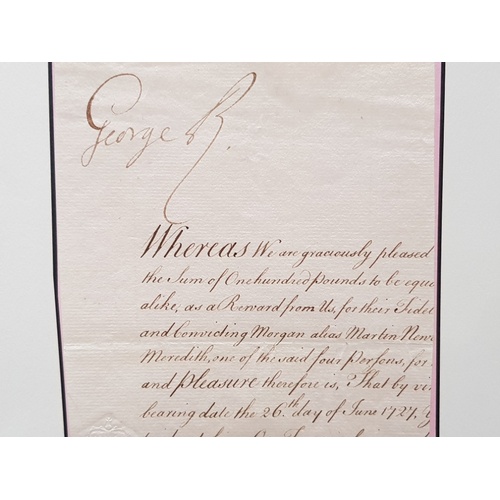 George R.
Whereas We are graciously pleased
the Sum of Onehundred pounds to be equa
alike, as a Reward from Us, for their Fidel
and Convicting Morgan alias Martin
Meredith, one of the said four Persons, for
and pleasure therefore is, That by vir
bearing date the 26.th day of June 1727.